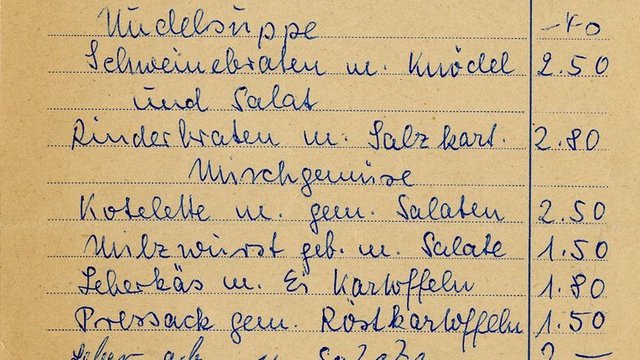 Nudelsuppe -.40
Schweinebraten m. Knödel 2.50
und Salat
Rinderbraten m. Salzkart. 2.80
Mischgemüse
Kotelette m. gem. Salaten 2.50
Milzwurst geb. m. Salate 1.50
Leberkäs m. Ei Kartoffeln 1.80
Pressack gem. Röstkartoffeln 1.50